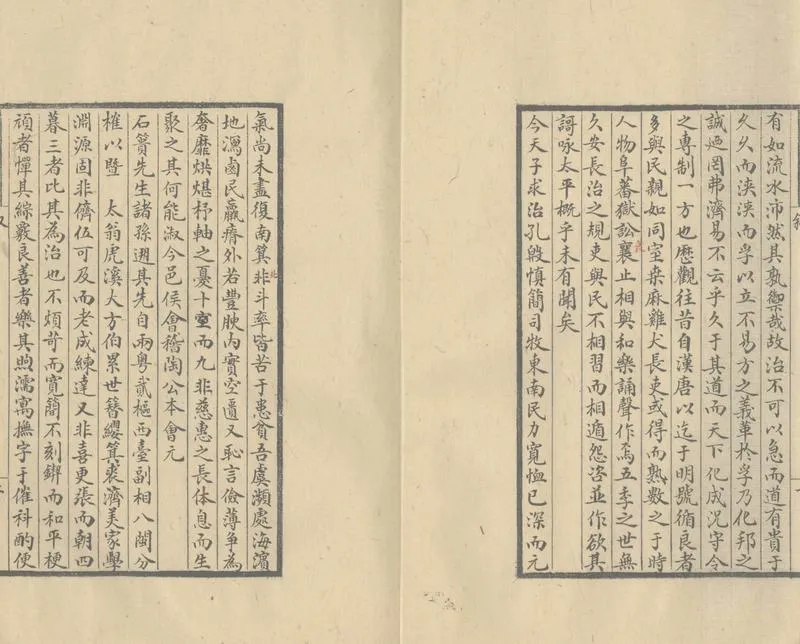 有如流水沛然其孰禦哉故治不可以急而道有貴于
久久而浹浹而孚以立不易方之義革於孚乃化邦之
誠迺罔弗濟易不云乎久于其道而天下化成況守令
之專制一方也歷觀往昔自漢唐以迄于明號循良者
多與民親如同室桒麻雞犬長吏或得而熟數之于時
人物阜蕃獄訟衰止相與和樂誦聲作焉五季之世無
久安長治之規吏與民不相習而相遁怨咨並作欲其
謌咏太平概乎未有聞矣
今天子求治孔殷慎簡司牧東南民力寬恤已深而元
氣尚未盡復南箕北斗率皆苦于患貧吾虞瀕處海濱
地潟鹵民羸瘠外若豐腴內實空匱又恥言儉薄争為
奢靡烘煁杼軸之憂十室而九非慈惠之長体息而生
聚之其何能淑今邑侯會稽陶公本會元
石簣先生諸孫遡其先自兩粵貳樞西臺副相八閩分
榷以暨 太翁虎溪大方伯累世簪纓箕裘濟美家學
淵源固非儕伍可及而老成練達又非喜更張而朝四
暮三者比其為治也不煩苛而寬簡不刻鍥而和平梗
頑者憚其綜覈良善者樂其煦濡寓撫字于催科酌便